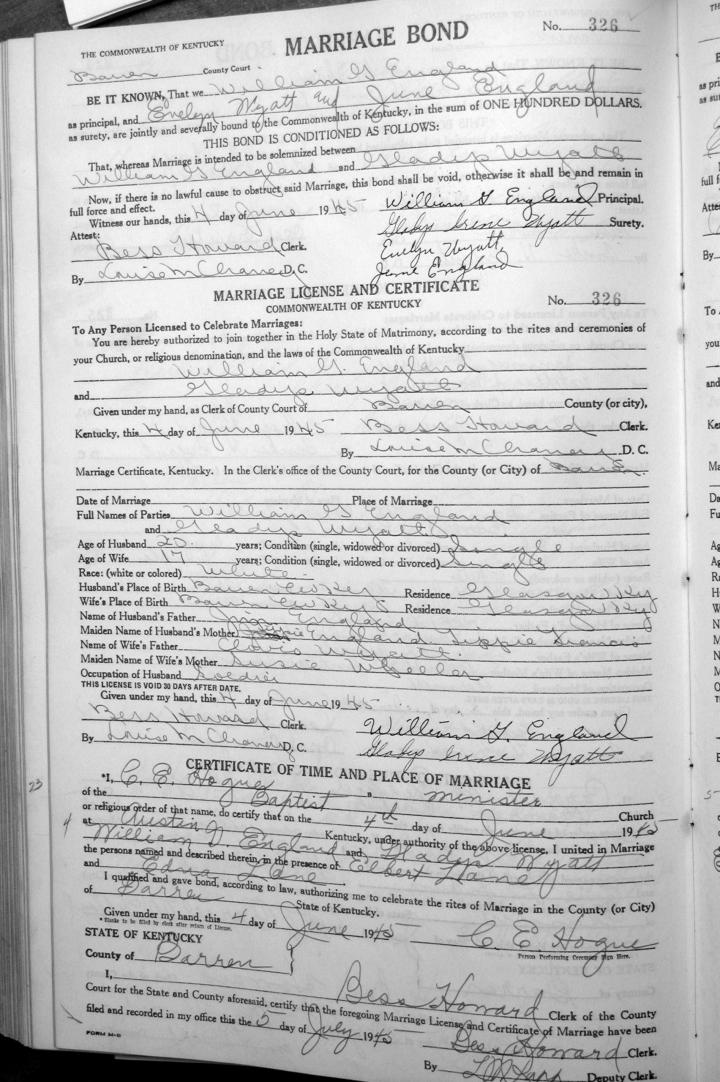 THE COMMONWEALTH OF KENTUCKY
MARRIAGE BOND
No. 326
Barren County Court.
BE IT KNOWN, That we William G England
as principal, and Evelyn Wyatt and June England
as surety, are jointly and severally bound to the Commonwealth of Kentucky, in the sum of ONE HUNDRED DOLLARS.
THIS BOND IS CONDITIONED AS FOLLOWS:
That, whereas Marriage is intended to be solemnized between
William G England and Gladys Wyatt
Now, if there is no lawful cause to obstruct said Marriage, this bond shall be void, otherwise it shall be and remain in
full force and effect.
Witness our hands, this 4 day of June 1945 William G. England Principal.
Attest: Gladys Irene Wyatt Surety.
Bess Howard Clerk. Evelyn Wyatt
By Louise McChaney D. C. June England
MARRIAGE LICENSE AND CERTIFICATE
COMMONWEALTH OF KENTUCKY
No. 326
To Any Person Licensed to Celebrate Marriages:
You are hereby authorized to join together in the Holy State of Matrimony, according to the rites and ceremonies of
your Church, or religious denomination, and the laws of the Commonwealth of Kentucky
William G. England
and Gladys Wyatt
Given under my hand, as Clerk of County Court of Barren County (or city),
Kentucky, this 4 day of June 1945 Bess Howard Clerk.
By Louise McChaney D. C.
Marriage Certificate, Kentucky. In the Clerk's office of the County Court, for the County (or City) of Barren
Date of Marriage Place of Marriage
Full Names of Parties William G England
and Gladys Wyatt
Age of Husband 20 years; Condition (single, widowed or divorced) Single
Age of Wife 17 years; Condition (single, widowed or divorced) Single
Race: (white or colored) White
Husband's Place of Birth Barren Co Ky Residence Glasgow Ky
Wife's Place of Birth Barren Co Ky Residence Glasgow Ky
Name of Husband's Father England
Maiden Name of Husband's Mother England Lizzie Francis
Name of Wife's Father Clovis Wyatt
Maiden Name of Wife's Mother Susie Wheeler
Occupation of Husband Soldier
THIS LICENSE IS VOID 30 DAYS AFTER DATE.
Given under my hand, this 4 day of June 1945
Bess Howard Clerk. William G. England
By Louise McChaney D. C. Gladys Irene Wyatt
CERTIFICATE OF TIME AND PLACE OF MARRIAGE
*I, C. E. Hogue " minister
of the Baptist Church
or religious order of that name, do certify that on the 4th day of June 1945
at Austin Kentucky, under authority of the above license, I united in Marriage
William G. England and Gladys Wyatt
the persons named and described therein, in the presence of Elbert Lane
and Edna Lane
I qualified and gave bond, according to law, authorizing me to celebrate the rites of Marriage in the County (or City)
of Barren State of Kentucky.
Given under my hand, this 4 day of June 1945 C. E. Hogue
*Blanks to be filled by clerk after return of License.
Person Performing Ceremony Sign Here.
STATE OF KENTUCKY
County of Barren
I, Bess Howard Clerk of the County
Court for the State and County aforesaid, certify that the foregoing Marriage License and Certificate of Marriage have been
filed and recorded in my office this the 5 day of July 1945
Bess Howard Clerk.
By Deputy Clerk.
FORM M-D
23
4